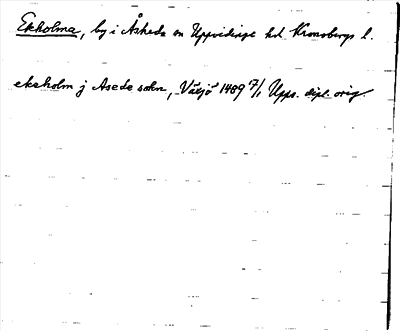 Ekholma, by i Åsheda sn Uppvidinge hd. Kronobergs l.
ekeholm j Asede sokn, Växjö 1489 7/1 Upps. dipl. orig.